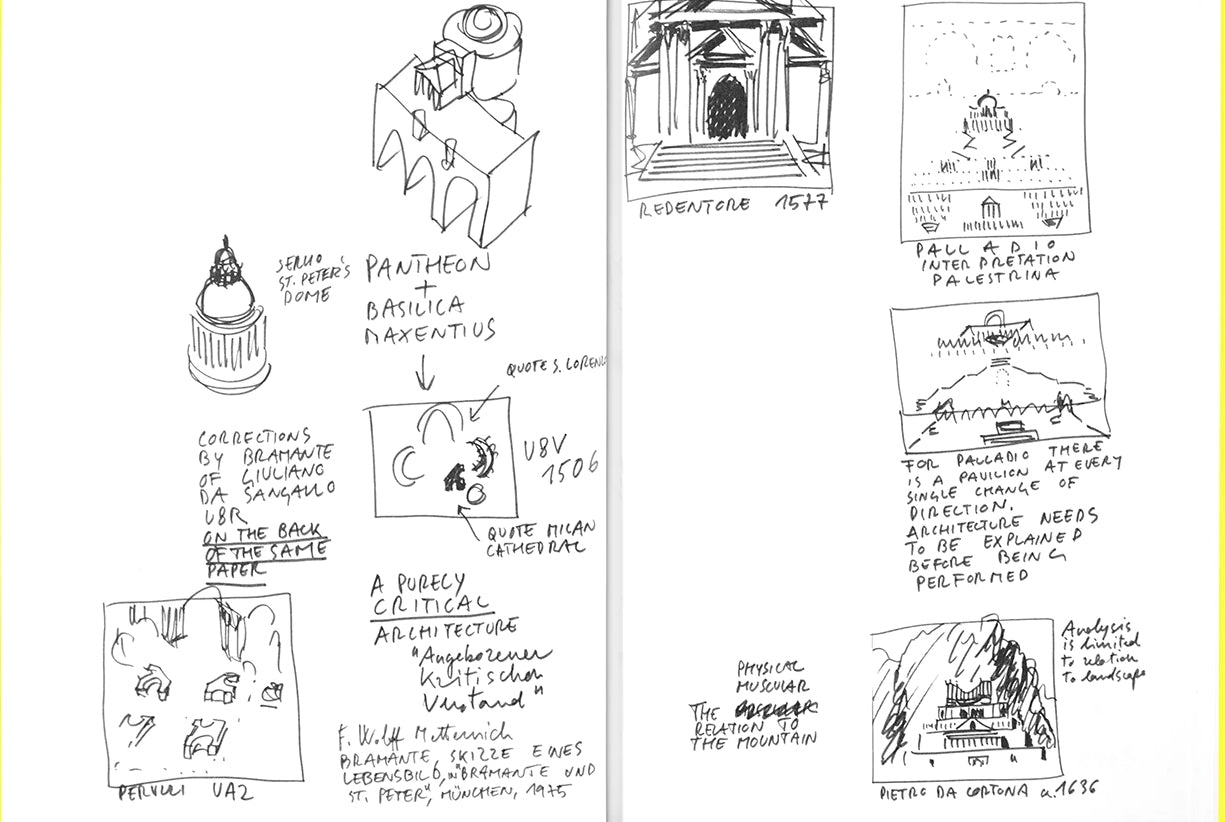 SERLIO
ST. PETER'S
DOME
PANTHEON
+
BASILICA
MAXENTIUS
QUOTE S. LORENZO
U8V
1506
QUOTE MILAN
CATHEDRAL
CORRECTIONS
BY BRAMANTE
OF GIULIANO
DA SANGALLO
U8R
ON THE BACK
OF THE SAME
PAPER
A PURELY
CRITICAL
ARCHITECTURE
"Angeborener
Kritischer
Verstand"
F. Wolff Metternich
BRAMANTE, SKIZZE EINES
LEBENSBILD, IN "BRAMANTE UND
ST. PETER", MÜNCHEN, 1975
PERUZZI UA2
REDENTORE 1577
PALLADIO
INTERPRETATION
PALESTRINA
FOR PALLADIO THERE
IS A PAVILION AT EVERY
SINGLE CHANGE OF
DIRECTION.
ARCHITECTURE NEEDS
TO BE EXPLAINED
BEFORE BEING
PERFORMED
PHYSICAL
MUSCULAR
THE
RELATION TO
THE MOUNTAIN
Analysis
is limited
to relation
to landscape
PIETRO DA CORTONA a. 1636